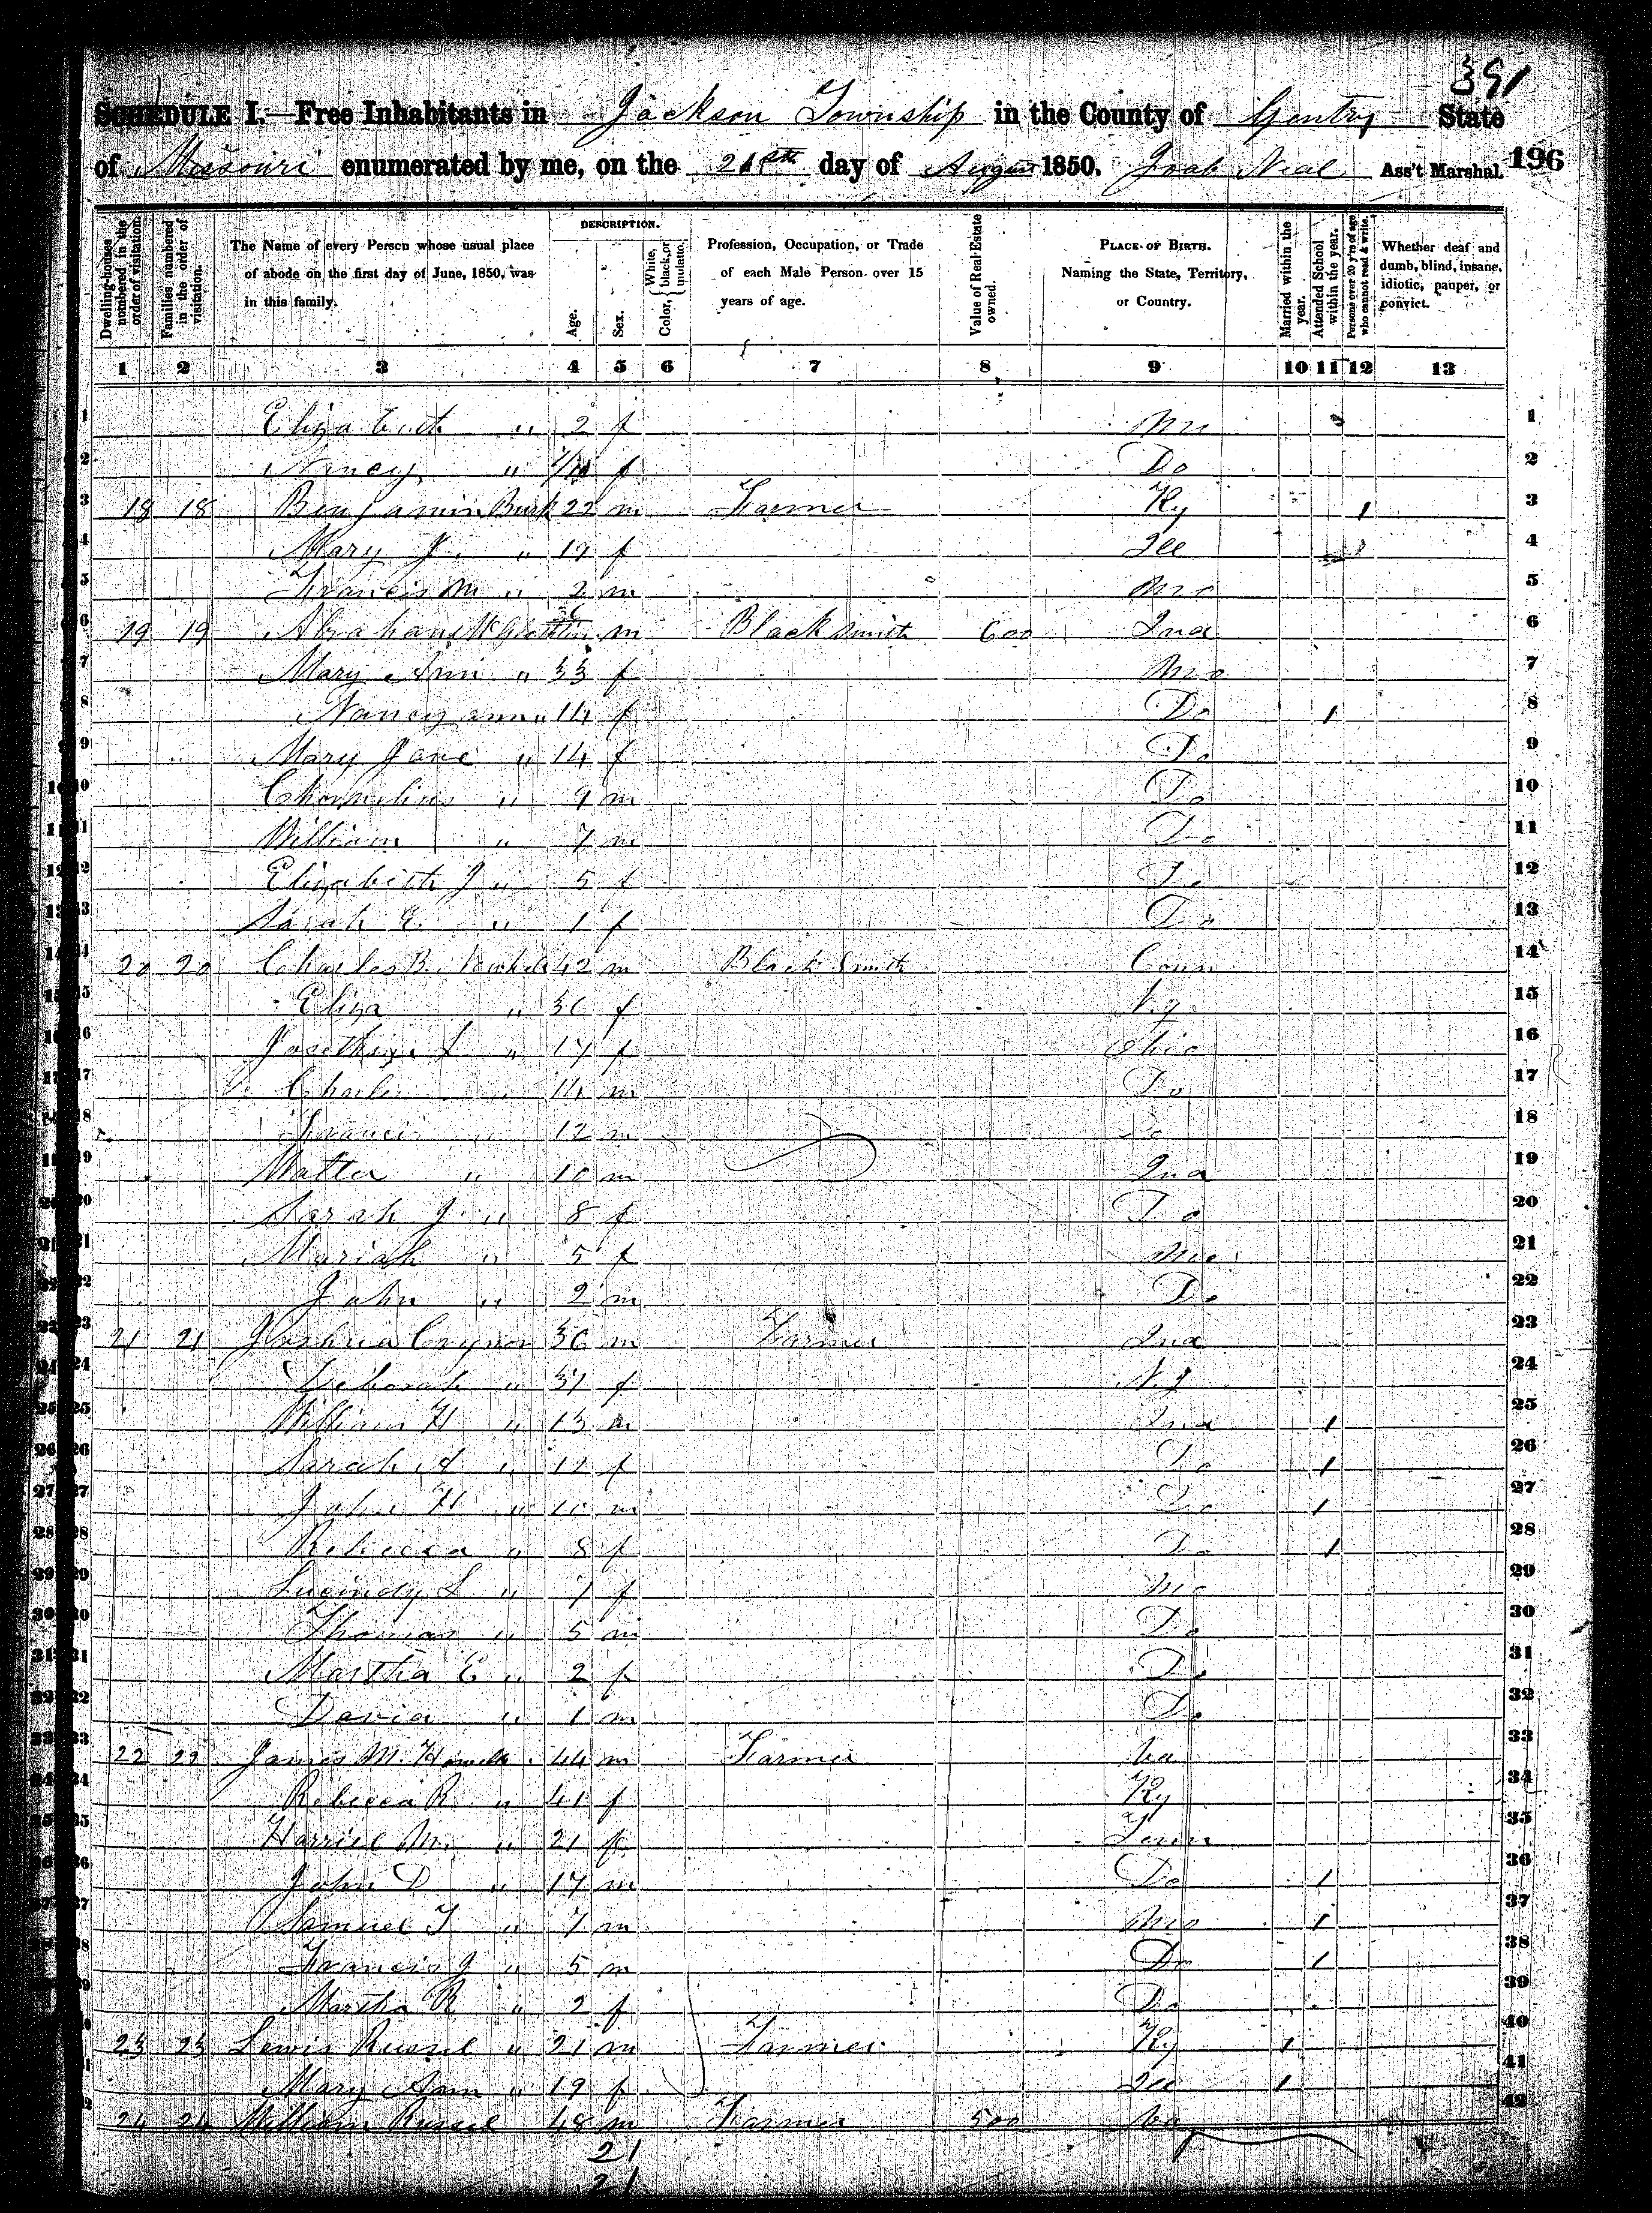 391
SCHEDULE I.—Free Inhabitants in Jackson Township in the County of Gentry State
of Missouri enumerated by me, on the 21st day of August 1850. Joab Neal Ass't Marshal. 196
Dwelling-houses numbered in the order of visitation.
Families numbered in the order of visitation.
The Name of every Person whose usual place of abode on the first day of June, 1850, was in this family.
DESCRIPTION.
Age.
Sex.
Color, { White, black, or mulatto.
Profession, Occupation, or Trade of each Male Person over 15 years of age.
Value of Real Estate owned.
PLACE OF BIRTH. Naming the State, Territory, or Country.
Married within the year.
Attended School within the year.
Persons over 20 y'rs of age who cannot read & write.
Whether deaf and dumb, blind, insane, idiotic, pauper, or convict.
1 2 3 4 5 6 7 8 9 10 11 12 13
1 Elizabeth " 2 f Mo 1
2 Nancy " f Do 2
3 18 18 Benjamin Burk 22 m Farmer Ky 1 3
4 Mary J. " 19 f Ill 1 4
5 Francis M " 2 m Mo 5
6 19 19 Abraham m Black Smith 600 Ind 6
7 Mary Ann " 33 f Mo 7
8 Nancy ann " 14 f Do 1 8
9 Mary Jane " 14 f Do 9
10 Chornelius " 9 m Do 10
11 William " 7 m Do 11
12 Elizabeth J " 5 f Do 12
13 Sarah E. " 1 f Do 13
14 20 20 Charles B. 42 m Black Smith Conn 14
15 Eliza " 36 f N.y. 15
16 L " 17 f Ohio 16
17 Charles " 14 m Do 17
18 Francis " 12 m Do 18
19 Walter " 10 m Ind 19
20 Sarah J. " 8 f Do 20
21 Mariah " 5 f Mo 21
22 John " 2 m Do 22
23 21 21 Joshua 36 m Farmer Ind 23
24 Deborah " 37 f N.J 24
25 William H " 13 m Ind 1 25
26 Sarah A " 12 f Do 1 26
27 John H " 10 m Do 1 27
28 Rebecca " 8 f Do 1 28
29 Lucindy L " 7 f Mo 29
30 Thomas " 5 m Do 30
31 Martha E " 2 f Do 31
32 David " 1 m Do 32
33 22 22 James M. 44 m Farmer Va 33
34 Rebecca R " 41 f Ky 34
35 Harriel M. " 21 f Tenn 35
36 John D " 17 m Do 1 36
37 Samuel T " 7 m Mo 1 37
38 Francis J " 5 m Do 1 38
39 Martha R " 2 f Do 39
40 23 23 Lewis Russel " 21 m Farmer Ky 1 40
41 Mary Ann " 19 f Ill 1 41
42 24 24 William Russel 48 m Farmer 500 Va 42
21
21